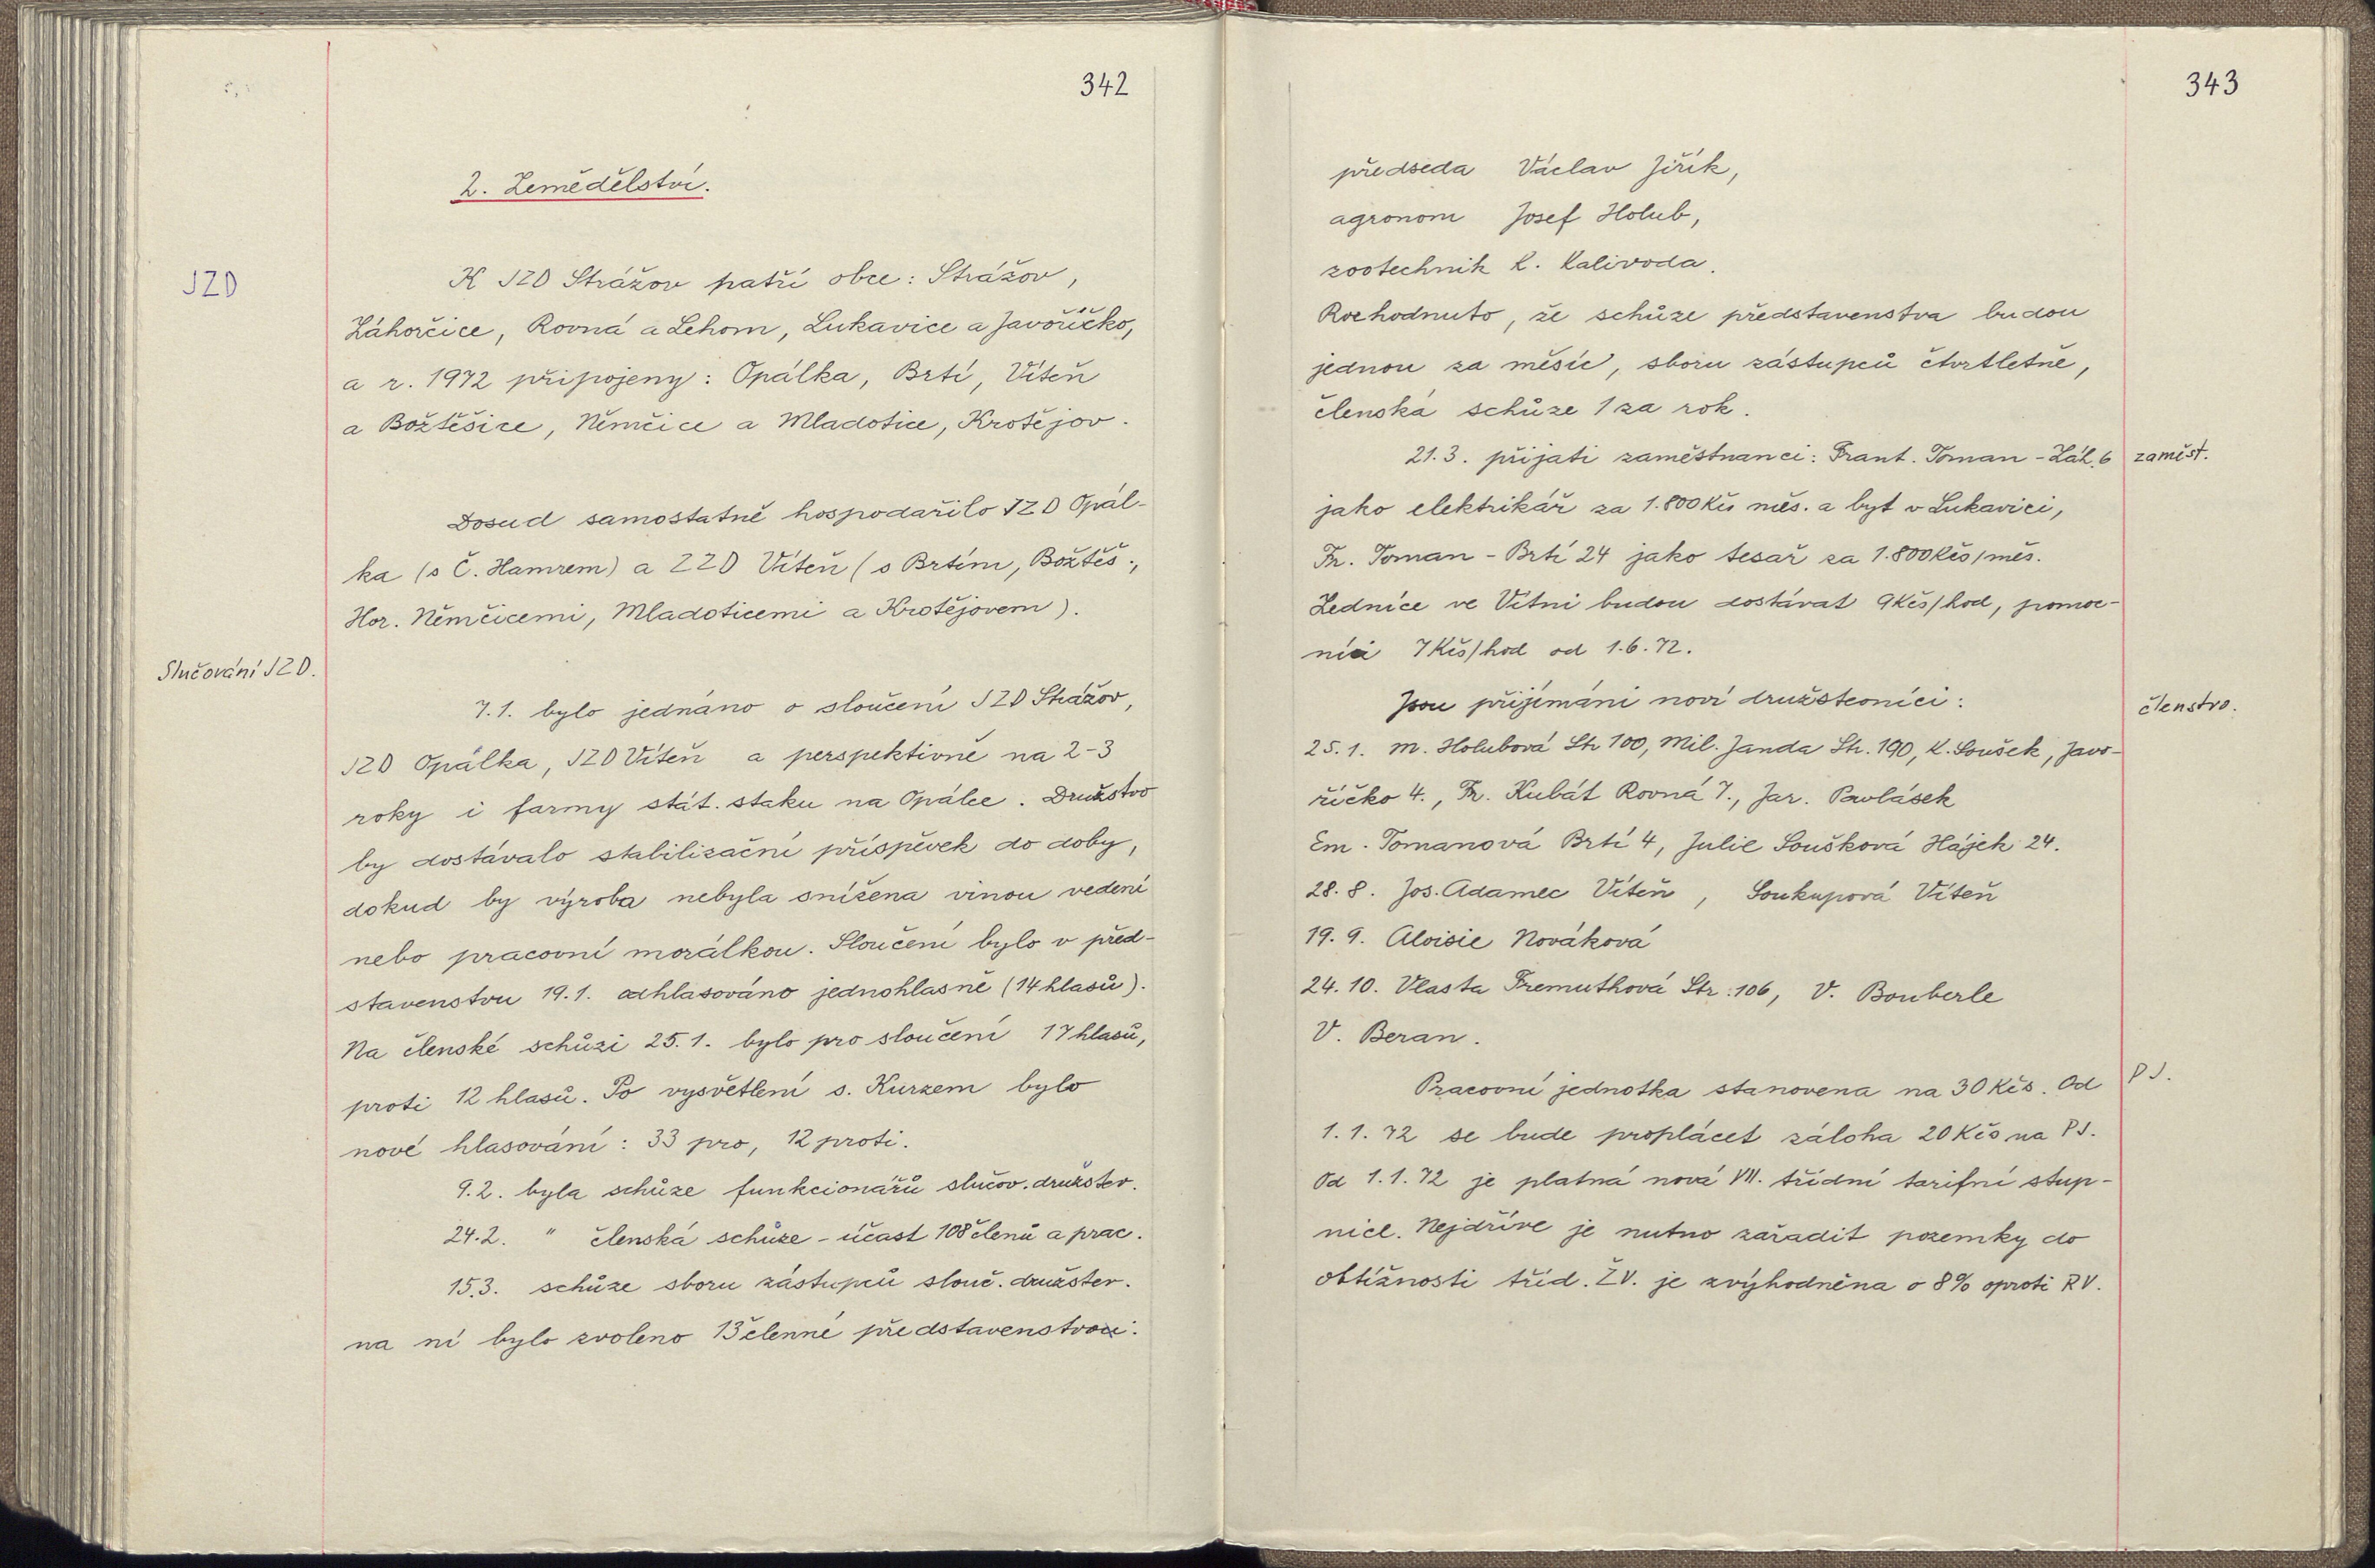 342
2. Zemědělství.
JZD
K JZD Strážov patří obce: Strážov,
Záhorčice, Rovná a Lehom, Lukavice a Javoříčko,
a r. 1972 připojeny: Opálka, Brtí, Víteň
a Božtěšice, Němčice a Mladotice, Krotějov.
Dosud samostatně hospodařilo JZD Opál-
ka (s Č. Hamrem) a ZZD Víteň (s Brtím, Božtěš.,
Hor. Němčicemi, Mladoticemi a Krotějovem).
Slučování JZD.
7.1. bylo jednáno o sloučení JZD Strážov,
JZD Opálka, JZD Víteň a perspektivně na 2-3
roky i farmy stát. staku na Opálce. Družstvo
by dostávalo stabilizační příspěvek do doby,
dokud by výroba nebyla snížena vinou vedení
nebo pracovní morálkou. Sloučení bylo v před-
stavenstvu 19.1. odhlasováno jednohlasně (14 hlasů).
Na členské schůzi 25.1. bylo pro sloučení 17 hlasů,
proti 12 hlasů. Po vysvětlení s. Kurzem bylo
nové hlasování: 33 pro, 12 proti.
9.2. byla schůze funkcionářů slučov. družstev.
24.2. " členská schůze - účast 108 členů a prac.
15.3. schůze sboru zástupců slouč. družstev.
na ní bylo zvoleno 13členné představenstvo:
343
předseda Václav Jiřík,
agronom Josef Holub,
zootechnik K. Kalivoda.
Rozhodnuto, že schůze představenstva budou
jednou za měsíc, sboru zástupců čtvrtletně,
členská schůze 1 za rok.
21.3. přijati zaměstnanci: Frant. Toman - Záh. 6
zaměst.
jako elektrikář za 1.800 Kčs měs. a byt v Lukavici,
Fr. Toman - Brtí 24 jako tesař za 1.800 Kčs/měs.
Zedníce ve Vítni budou dostávat 9 Kčs/hod, pomoc-
níci 7 Kčs/hod od 1.6.72.
Jsou přijímáni noví družstevníci:
členstvo.
25.1. M. Holubová Str 100, Mil. Janda Str. 190, K. Soušek, Javo-
říčko 4., Fr. Kubát Rovná 7., Jar. Pavlásek
Em. Tomanová Brtí 4, Julie Soušková Hájek 24.
28.8. Jos. Adamec Víteň, Soukupová Víteň
19.9. Aloisie Nováková
24.10. Vlasta Fremuthová Str. 106, V. Bouberle
V. Beran.
Pracovní jednotka stanovena na 30 Kčs. Od
PJ.
1.1.72 se bude proplácet záloha 20 Kčs na PJ.
Od 1.1.72 je platná nová VII. třídní tarifní stup-
nice. Nejdříve je nutno zařadit pozemky do
obtížnosti tříd. ŽV. je zvýhodněna o 8% oproti RV.